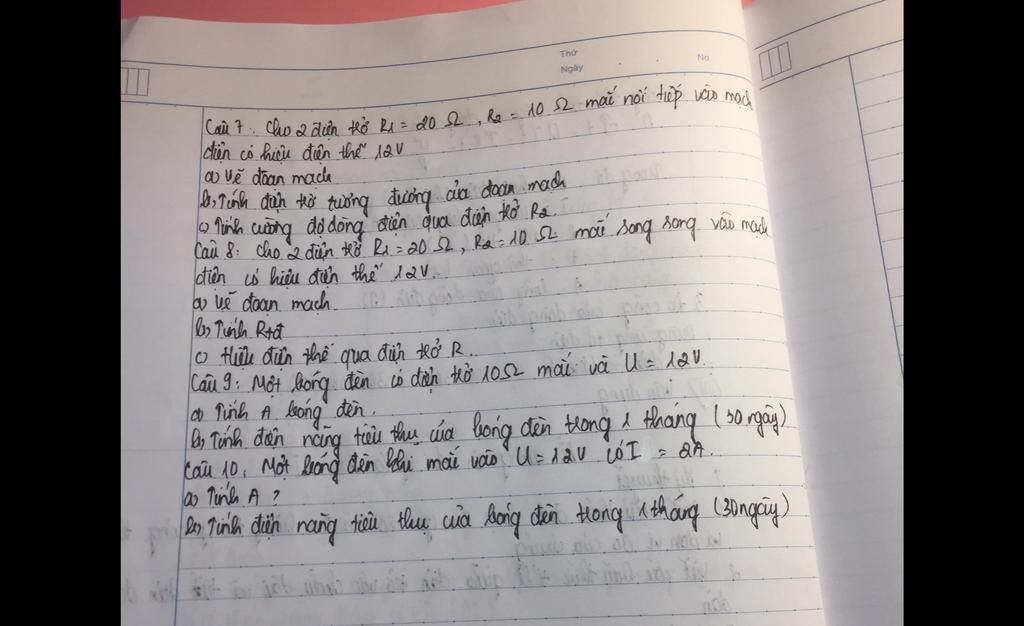 Thứ
Ngày
No.
Câu 7. Cho 2 điện trở R1 = 20 Ω, R2 = 10 Ω mắc nối tiếp vào mạch
điện có hiệu điện thế 12V
a) Vẽ đoạn mạch
b) Tính điện trở tương đương của đoạn mạch
c) Tính cường độ dòng điện qua điện trở R2.
Câu 8: Cho 2 điện trở R1 = 20 Ω, R2 = 10 Ω mắc song song vào mạch
điện có hiệu điện thế 12V.
a) Vẽ đoạn mạch.
b) Tính Rtđ
c) Hiệu điện thế qua điện trở R.
Câu 9: Một bóng đèn có điện trở 10Ω mắc và U = 12V.
a) Tính A bóng đèn.
b) Tính điện năng tiêu thụ của bóng đèn trong 1 tháng (30 ngày)
Câu 10. Một bóng đèn khi mắc vào U = 12V có I = 2A.
a) Tính A ?
b) Tính điện năng tiêu thụ của bóng đèn trong 1 tháng (30 ngày)